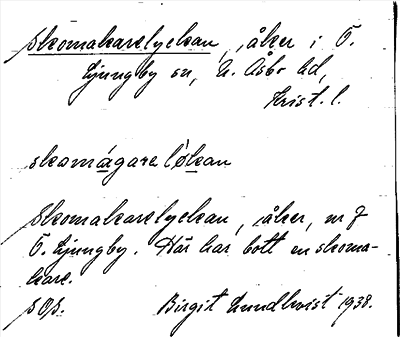 Skomakarelyckan, åker i Ö.
Ljungby sn, N. Åsbo hd,
Krist. l.
skomágarelǿkan
Skomakarelyckan, åker, nr 7
Ö. Ljungby. Här har bott en skoma-
kare.
SOS. Birgit Lundkvist 1938.